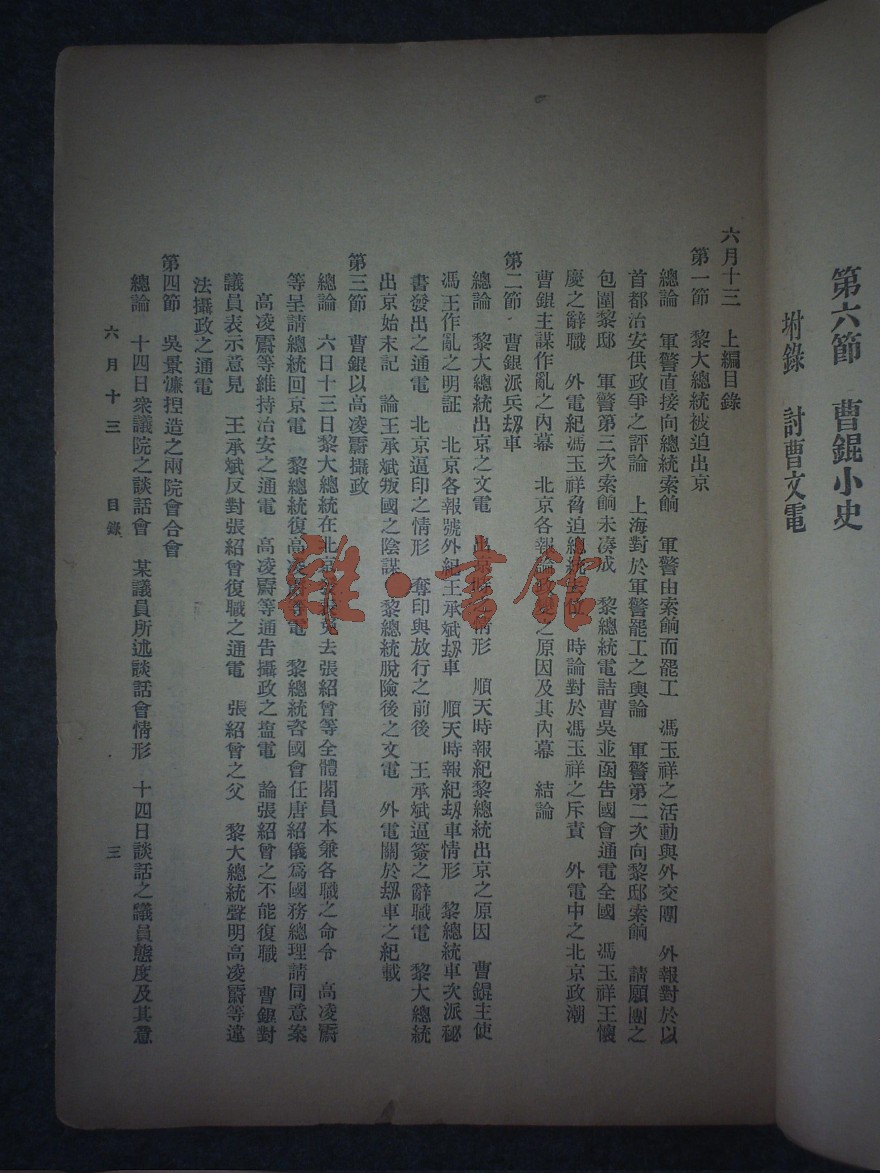 第六節　曹錕小史
坿錄　討曹文電
六月十三　上編目錄
第一節　黎大總統被迫出京
總論　軍警直接向總統索餉　軍警由索餉而罷工　馮玉祥之活動與外交團　外報對於以
首都治安供政爭之評論　上海對於軍警罷工之輿論　軍警第二次向黎邸索餉　請願團之
包圍黎邸　軍警第三次索餉未凑成　黎總統電詰曹吳並函告國會通電全國　馮玉祥王懷
慶之辭職　外電紀馮玉祥脅迫總統去位　時論對於馮玉祥之斥責　外電中之北京政潮
曹錕主謀作亂之內幕　北京各報論之原因及其內幕　結論
第二節　曹錕派兵刼車
總論　黎大總統出京之文電　出京時情形　順天時報紀黎總統出京之原因　曹錕主使
馮王作亂之明証　北京各報號外紀王承斌刼車　順天時報紀刼車情形　黎總統車次派秘
書發出之通電　北京逼印之情形　奪印與放行之前後　王承斌逼簽之辭職電　黎大總統
出京始末記　論王承斌叛國之陰謀　黎總統脫險後之文電　外電關於刼車之紀載
第三節　曹錕以高凌霨攝政
總論　六日十三日黎大總統在北京免去張紹曾等全體閣員本兼各職之命令　高凌霨
等呈請總統回京電　黎總統復高凌霨等電　黎總統咨國會任唐紹儀爲國務總理請同意案
高凌霨等維持治安之通電　高凌霨等通告攝政之塩電　論張紹曾之不能復職　曹錕對
議員表示意見　王承斌反對張紹曾復職之通電　張紹曾之父　黎大總統聲明高凌霨等違
法攝政之通電
第四節　吳景濂捏造之兩院會合會
總論　十四日衆議院之談話會　某議員所述談話會情形　十四日談話之議員態度及其意
六月十三　目錄
三
雜·書館